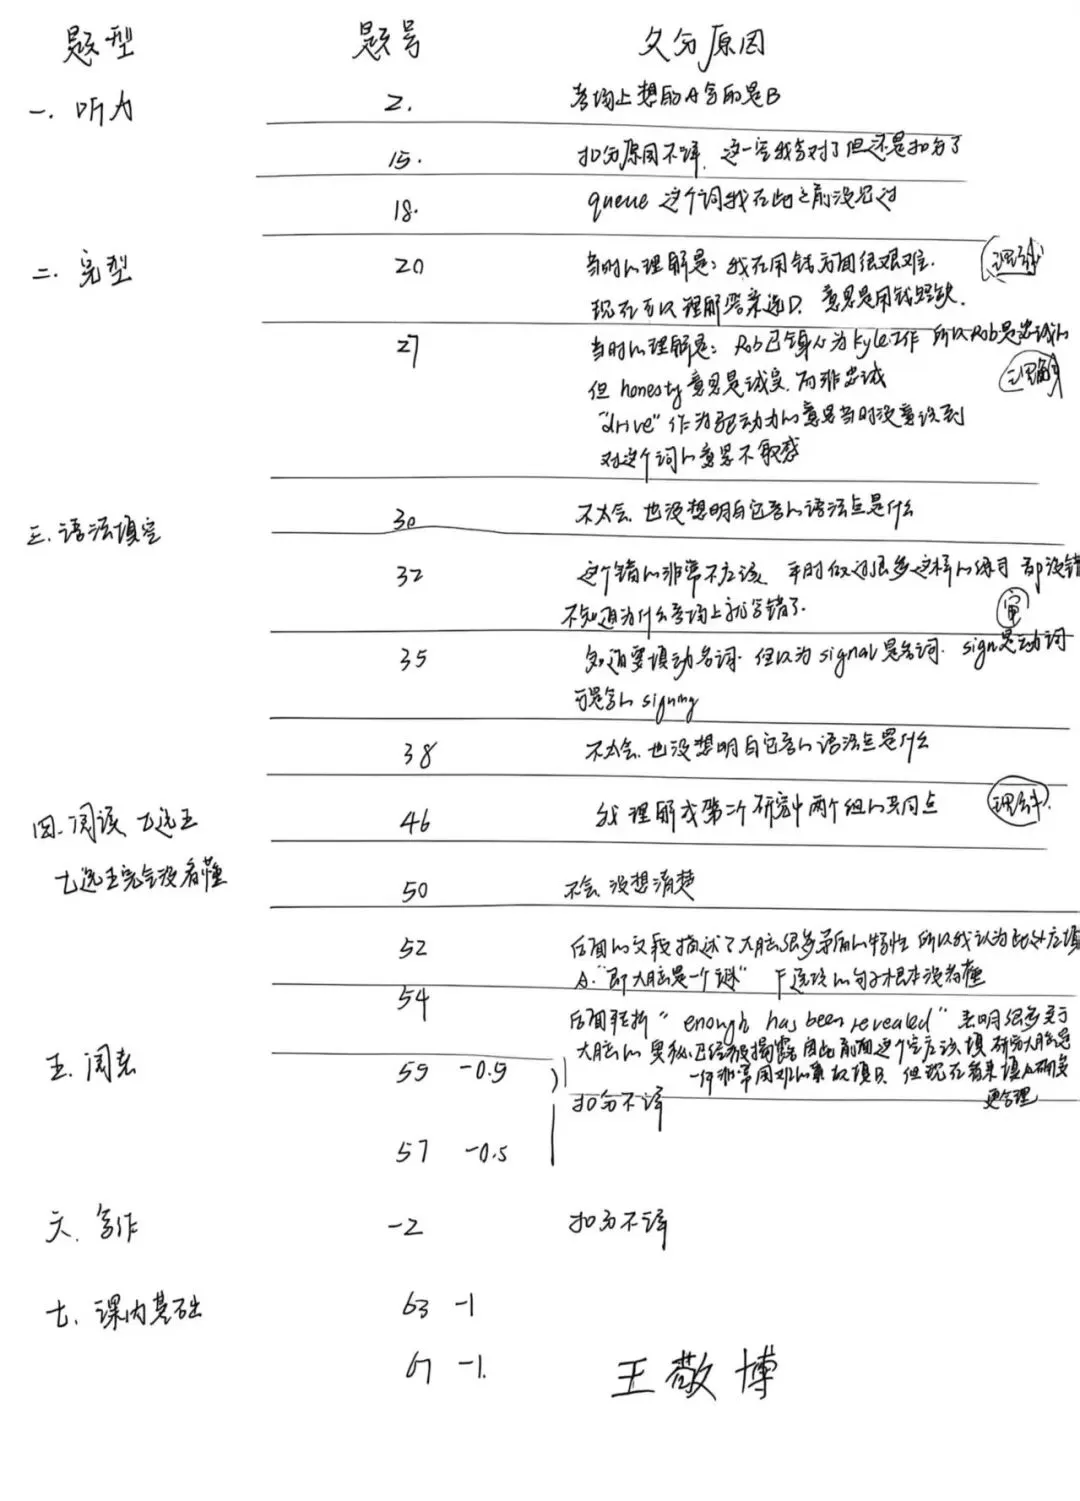 题型 题号 失分原因
一. 听力 2. 考场上想的A写的是B
15. 扣分原因不详, 这一空我写对了但还是扣分了
18. queue 这个词我在此之前没见过
二. 完型 20 当时的理解是: 我在用钱方面很艰难. 理解
现在可以理解答案选D. 意思是用钱短缺.
27 当时的理解是: Rob已全心为Kyle工作 所以Rob是忠诚的
但 honesty 意思是诚实, 而非忠诚 理解
"drive" 作为驱动力的意思当时没意识到
对这个词的意思不敏感
三. 语法填空 30 不太会. 也没想明白它考的语法点是什么
32 这个错的非常不应该. 平时做过很多这样的练习 都没错
不知道为什么考场上就写错了. 审
35 知道要填动名词. 但以为 signal 是名词. sign是动词
于是写的 signing
38 不太会. 也没想明白它考的语法点是什么
四. 阅读 七选五 46 我理解成第二个研究中两个组的共同点 理解.
七选五完全没看懂 50 不会 没想清楚
52 后面的文段描述了大脑很多矛盾的特性 所以我认为此处应填
A. "即大脑是一个谜" F选项的句子根本没看懂
54 后面转折 "enough has been revealed" 表明很多关于
大脑的奥秘已经被揭露 因此前面这个空应该填 研究大脑是
一件非常困难的事 故填B. 但现在看来填A确实
更合理
五. 阅表 55 -0.5 扣分不详
57 -0.5
六. 写作 -2 扣分不详
七. 课内基础 63 -1
67 -1.
王敬博